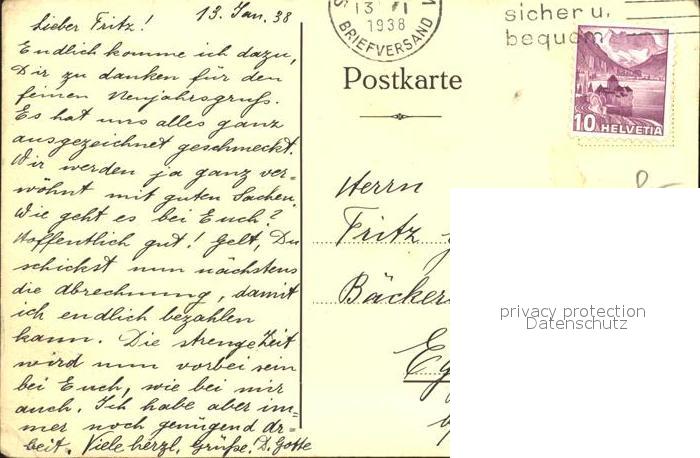 13. Jan. 38
Lieber Fritz!
Endlich komme ich dazu,
Dir zu danken für den
feinen Neujahrsgruss.
Es hat uns alles ganz
ausgezeichnet geschmeckt.
Wir werden ja ganz ver=
wöhnt mit guten Sachen.
Wie geht es bei Euch?
Hoffentlich gut! Gelt, Du
schickst nun nächstens
die Abrechnung, damit
ich endlich bezahlen
kann. Die strenge Zeit
wird nun vorbei sein
bei Euch, wie bei mir
auch. Ich habe aber im=
mer noch genügend Ar=
beit. Viele herzl. Grüße. D. Gotte
13 I
1938
BRIEFVERSAND
sicher u.
bequem
Postkarte
10 HELVETIA
Herrn
Fritz
Bäcker
Eg
privacy protection
Datenschutz